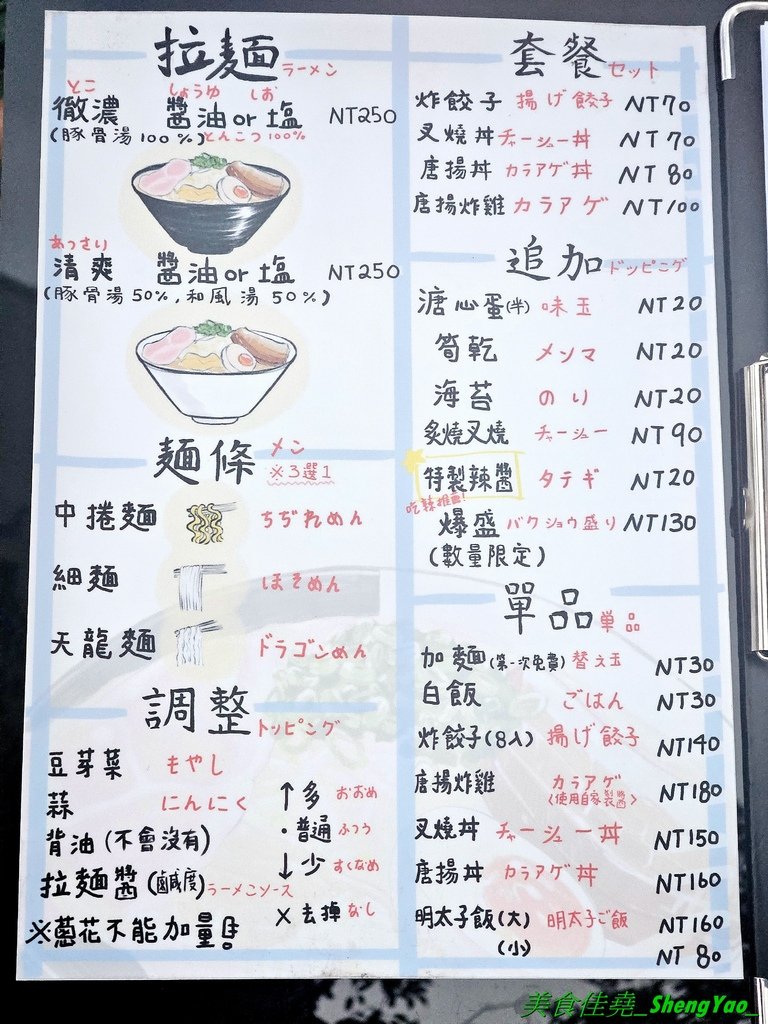 拉麵 ラーメン
とこ しょうゆ しお
徹濃 醬油or塩 NT250
(豚骨湯100%)とんこつ100%
あっさり
清爽 醬油or塩 NT250
(豚骨湯50%,和風湯50%)
麵條 メン
※3選1
中捲麵 ちぢれめん
細麵 ほそめん
天龍麵 ドラゴンめん
調整 トッピング
豆芽菜 もやし
蒜 にんにく
背油(不會沒有)
拉麵醬(鹹度)ラーメンソース
※蔥花不能加量!
↑多 おおめ
・普通 ふつう
↓少 すくなめ
×去掉 なし
套餐 セット
炸餃子 揚げ餃子 NT70
叉燒丼 チャーシュー丼 NT70
唐揚丼 カラアゲ丼 NT80
唐揚炸雞 カラアゲ NT100
追加 トッピング
溏心蛋(半) 味玉 NT20
筍乾 メンマ NT20
海苔 のり NT20
炙燒叉燒 チャーシュー NT90
特製辣醬 タテギ NT20
吃辣推薦!
爆盛 バクショウ盛り NT130
(數量限定)
單品 単品
加麵(第一次免費) 替え玉 NT30
白飯 ごはん NT30
炸餃子(8入) 揚げ餃子 NT140
唐揚炸雞 カラアゲ NT180
<使用自家製醬>
叉燒丼 チャーシュー丼 NT150
唐揚丼 カラアゲ丼 NT160
明太子飯(大) 明太子ご飯 NT160
(小) NT80
美食佳堯_ShengYao_